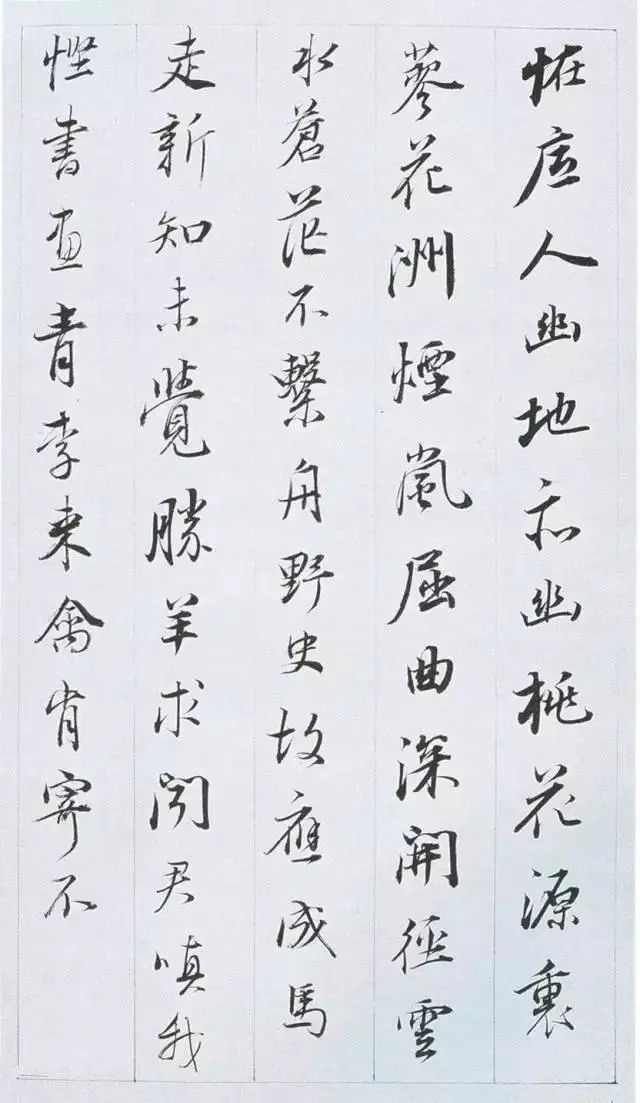 恠底人幽地亦幽桃花源裏
蓼花洲煙嵐屈曲深開徑雲
水蒼茫不繫舟野史故應成馬
走新知未覺勝羊求聞君嗔我
慳書畫青李來禽肯寄不